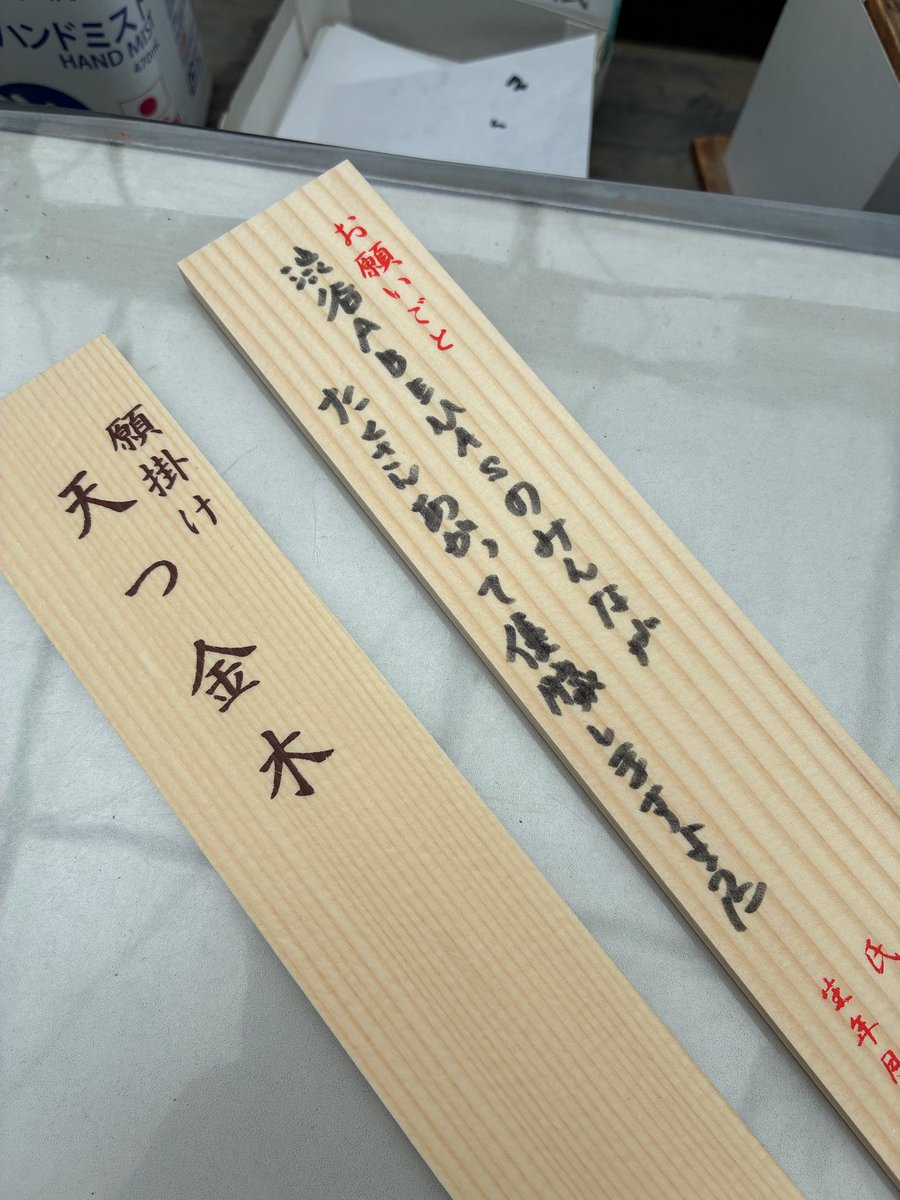 ハンドミスト
HAND MIST
470mL
お願いごと
渋谷ABEMASのみんなが
たくさんあがって優勝しますように
氏
生年月
願掛け
天つ金木